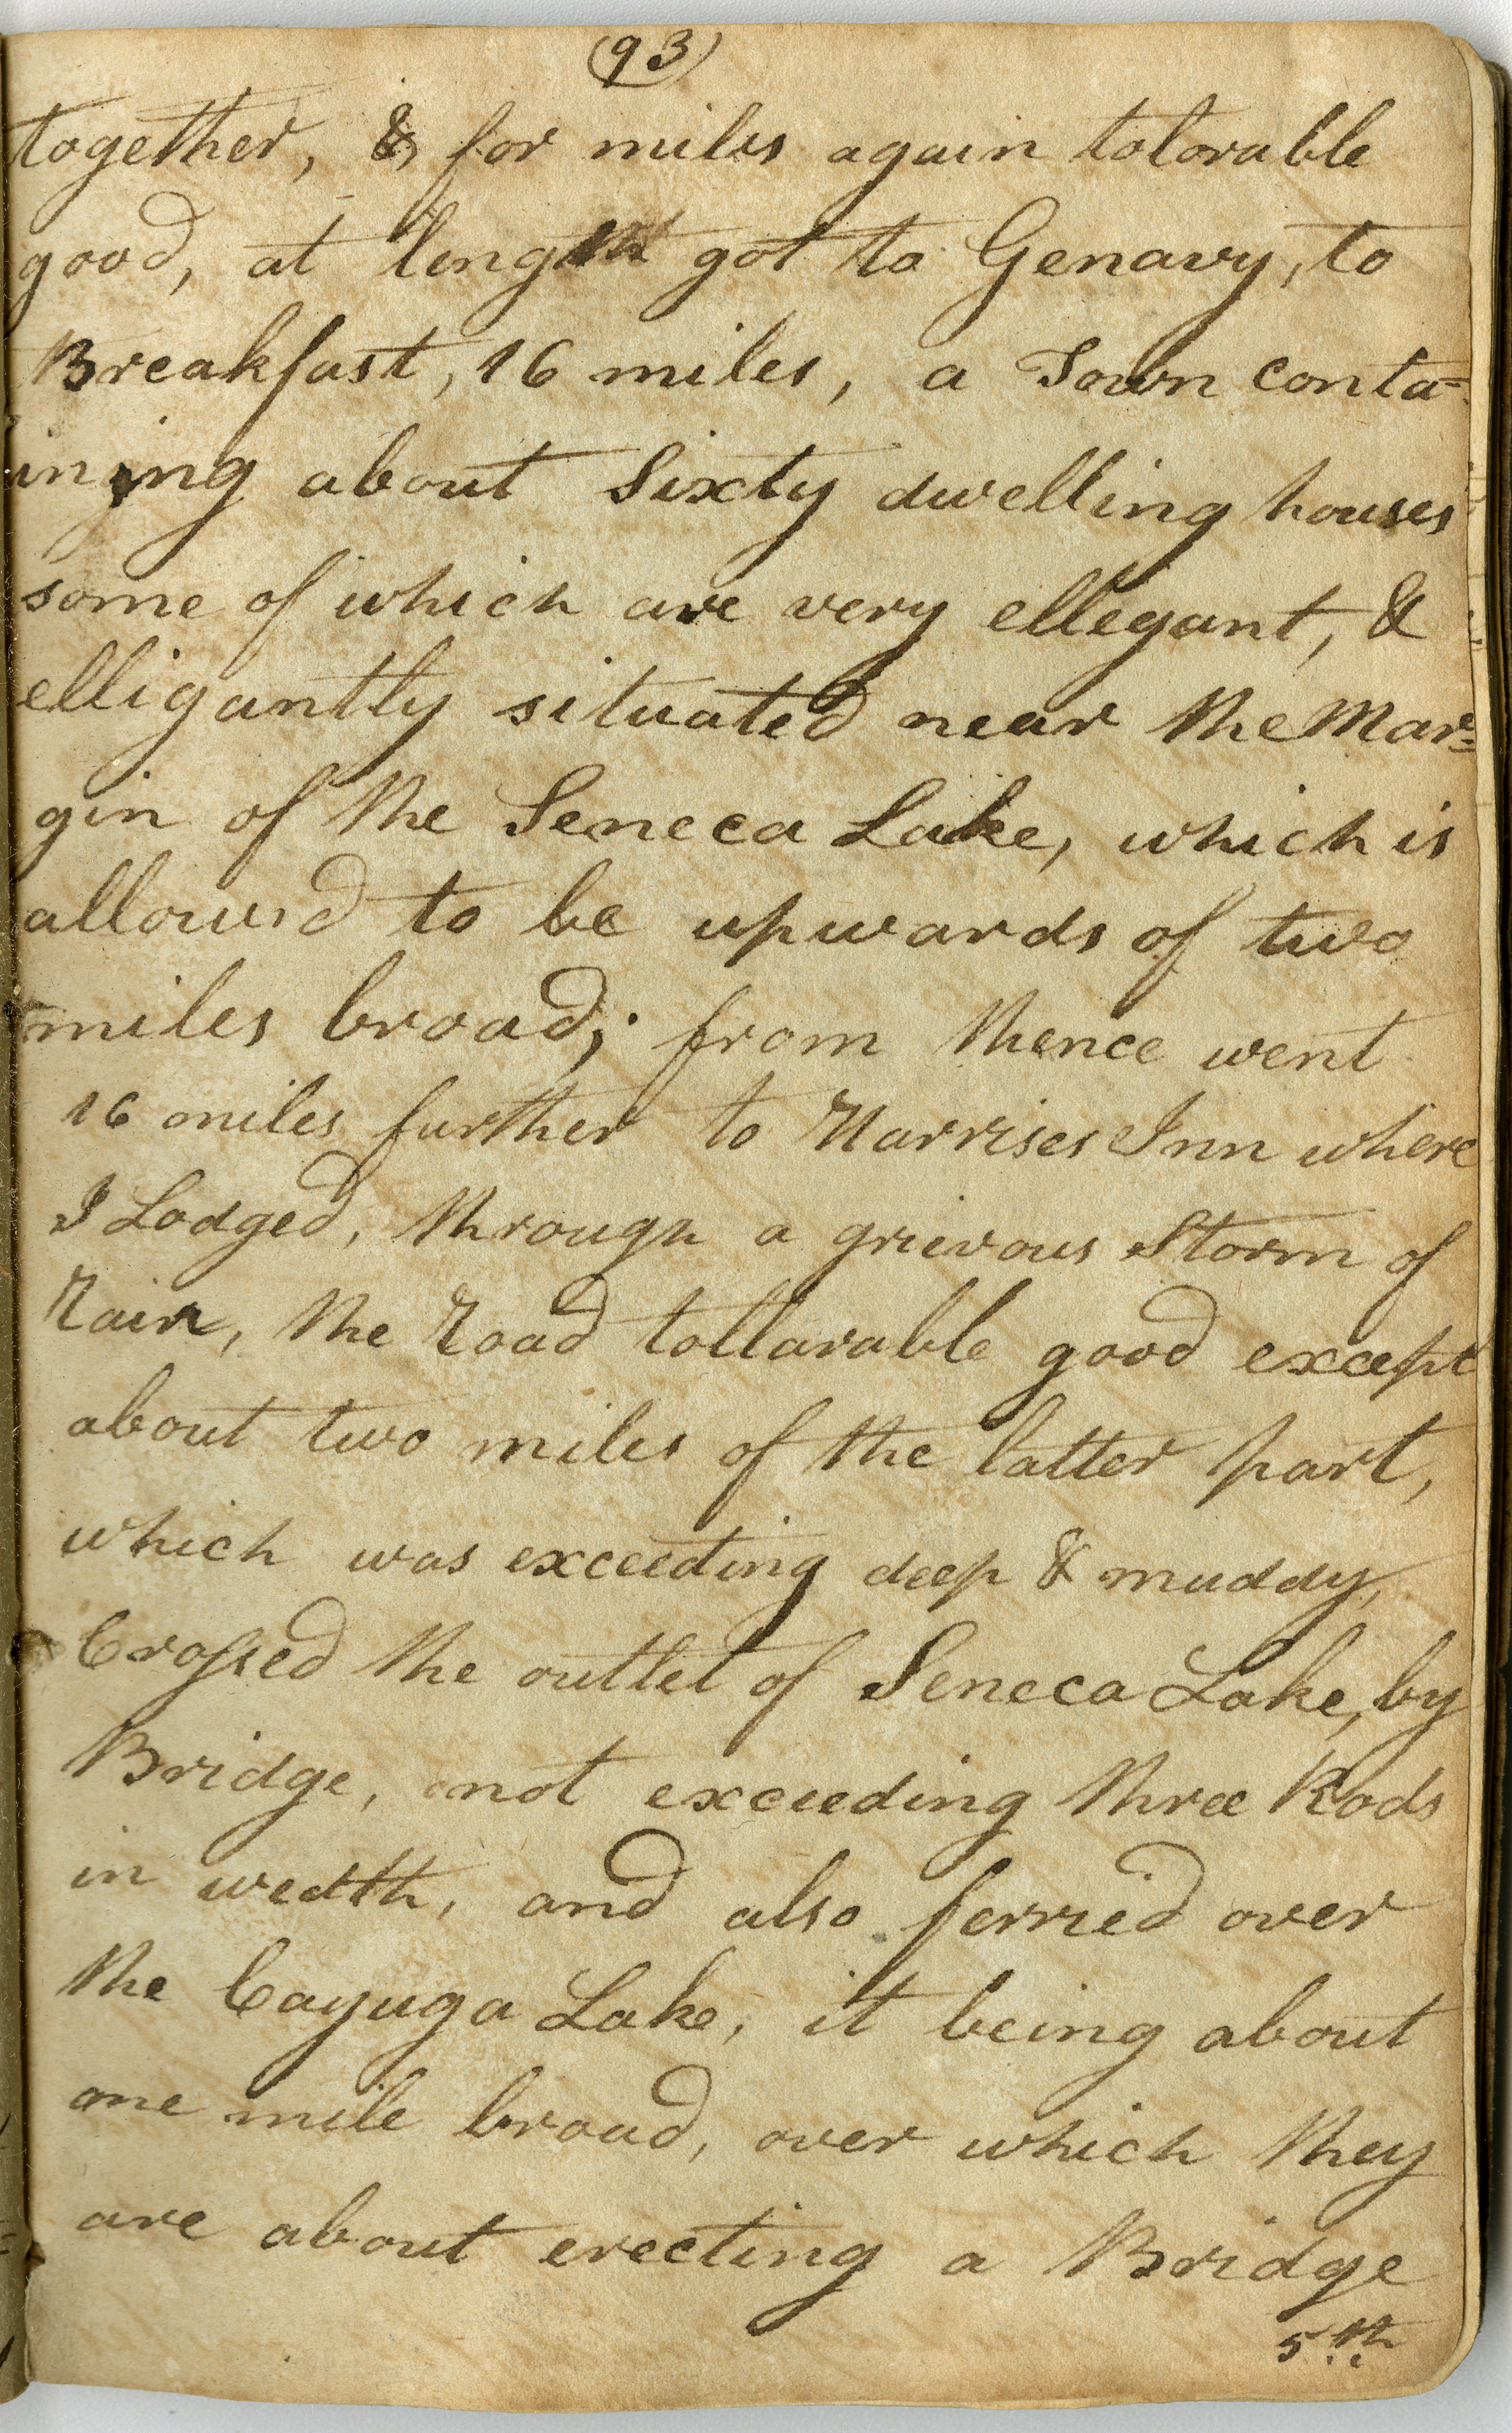 (93)
together, & for miles again tolorable
good, at length got to Genavy, to
Breakfast, 16 miles, a Town conta=
ining about Sixty dwelling houses
some of which are very ellegant, &
elligantly situated near the Mar=
gin of the Seneca Lake, which is
allow'd to be upwards of two
miles broad; from thence went
16 miles further to Harrises Inn where
I Lodged, through a grievous Storm of
Rain, the Road tollarable good except
about two miles of the latter part,
which was exceeding deep & muddy,
Crossed the outlet of Seneca Lake, by
Bridge, not exceeding three Rods
in wedth, and also ferried over
the Cayuga Lake, it being about
one mile broad, over which they
are about erecting a Bridge
5th